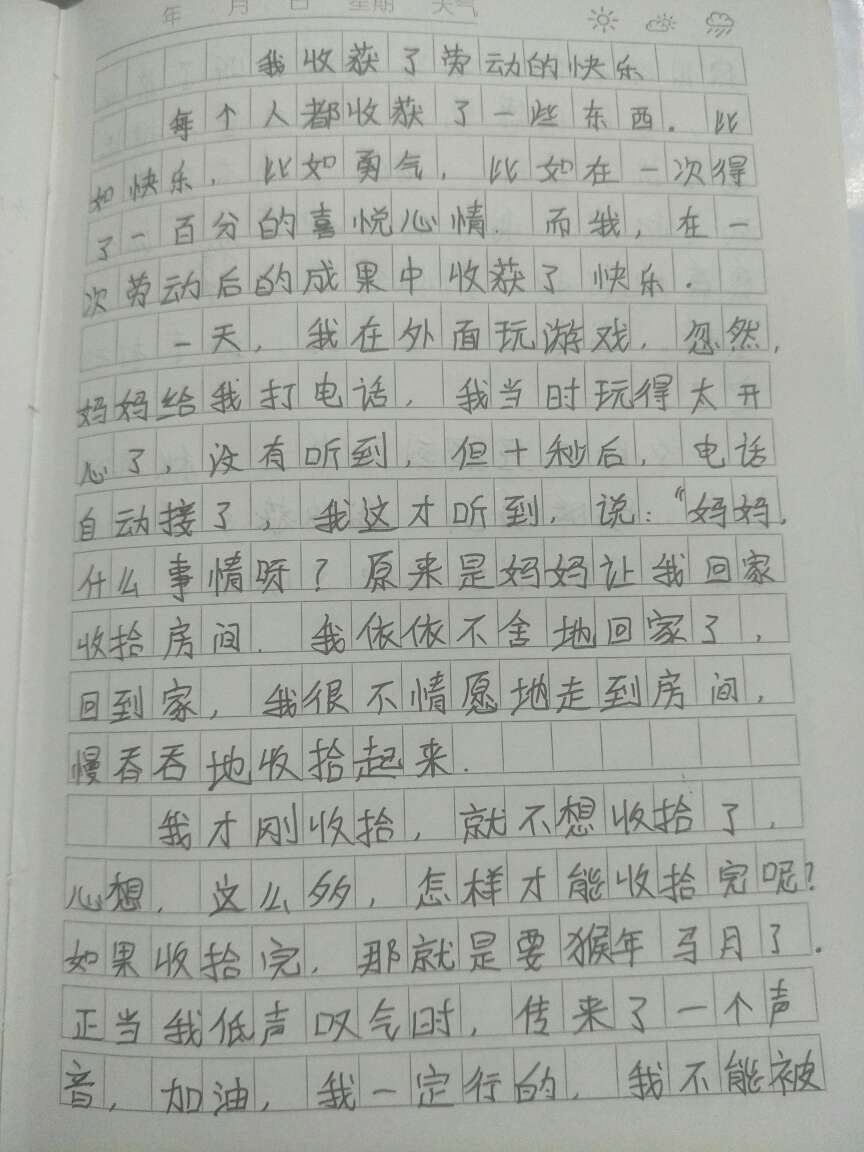 年 月 日 星期 天气
我收获了劳动的快乐
每个人都收获了一些东西.比
如快乐,比如勇气,比如在一次得
了一百分的喜悦心情.而我,在一
次劳动后的成果中收获了快乐.
一天,我在外面玩游戏,忽然,
妈妈给我打电话,我当时玩得太开
心了,没有听到,但十秒后,电话
自动接了,我这才听到,说:“妈妈,
什么事情呀?原来是妈妈让我回家
收拾房间.我依依不舍地回家了,
回到家,我很不情愿地走到房间,
慢吞吞地收拾起来.
我才刚收拾,就不想收拾了,
心想,这么多,怎样才能收拾完呢?
如果收拾完,那就是要猴年马月了.
正当我低声叹气时,传来了一个声
音,加油,我一定行的,我不能被